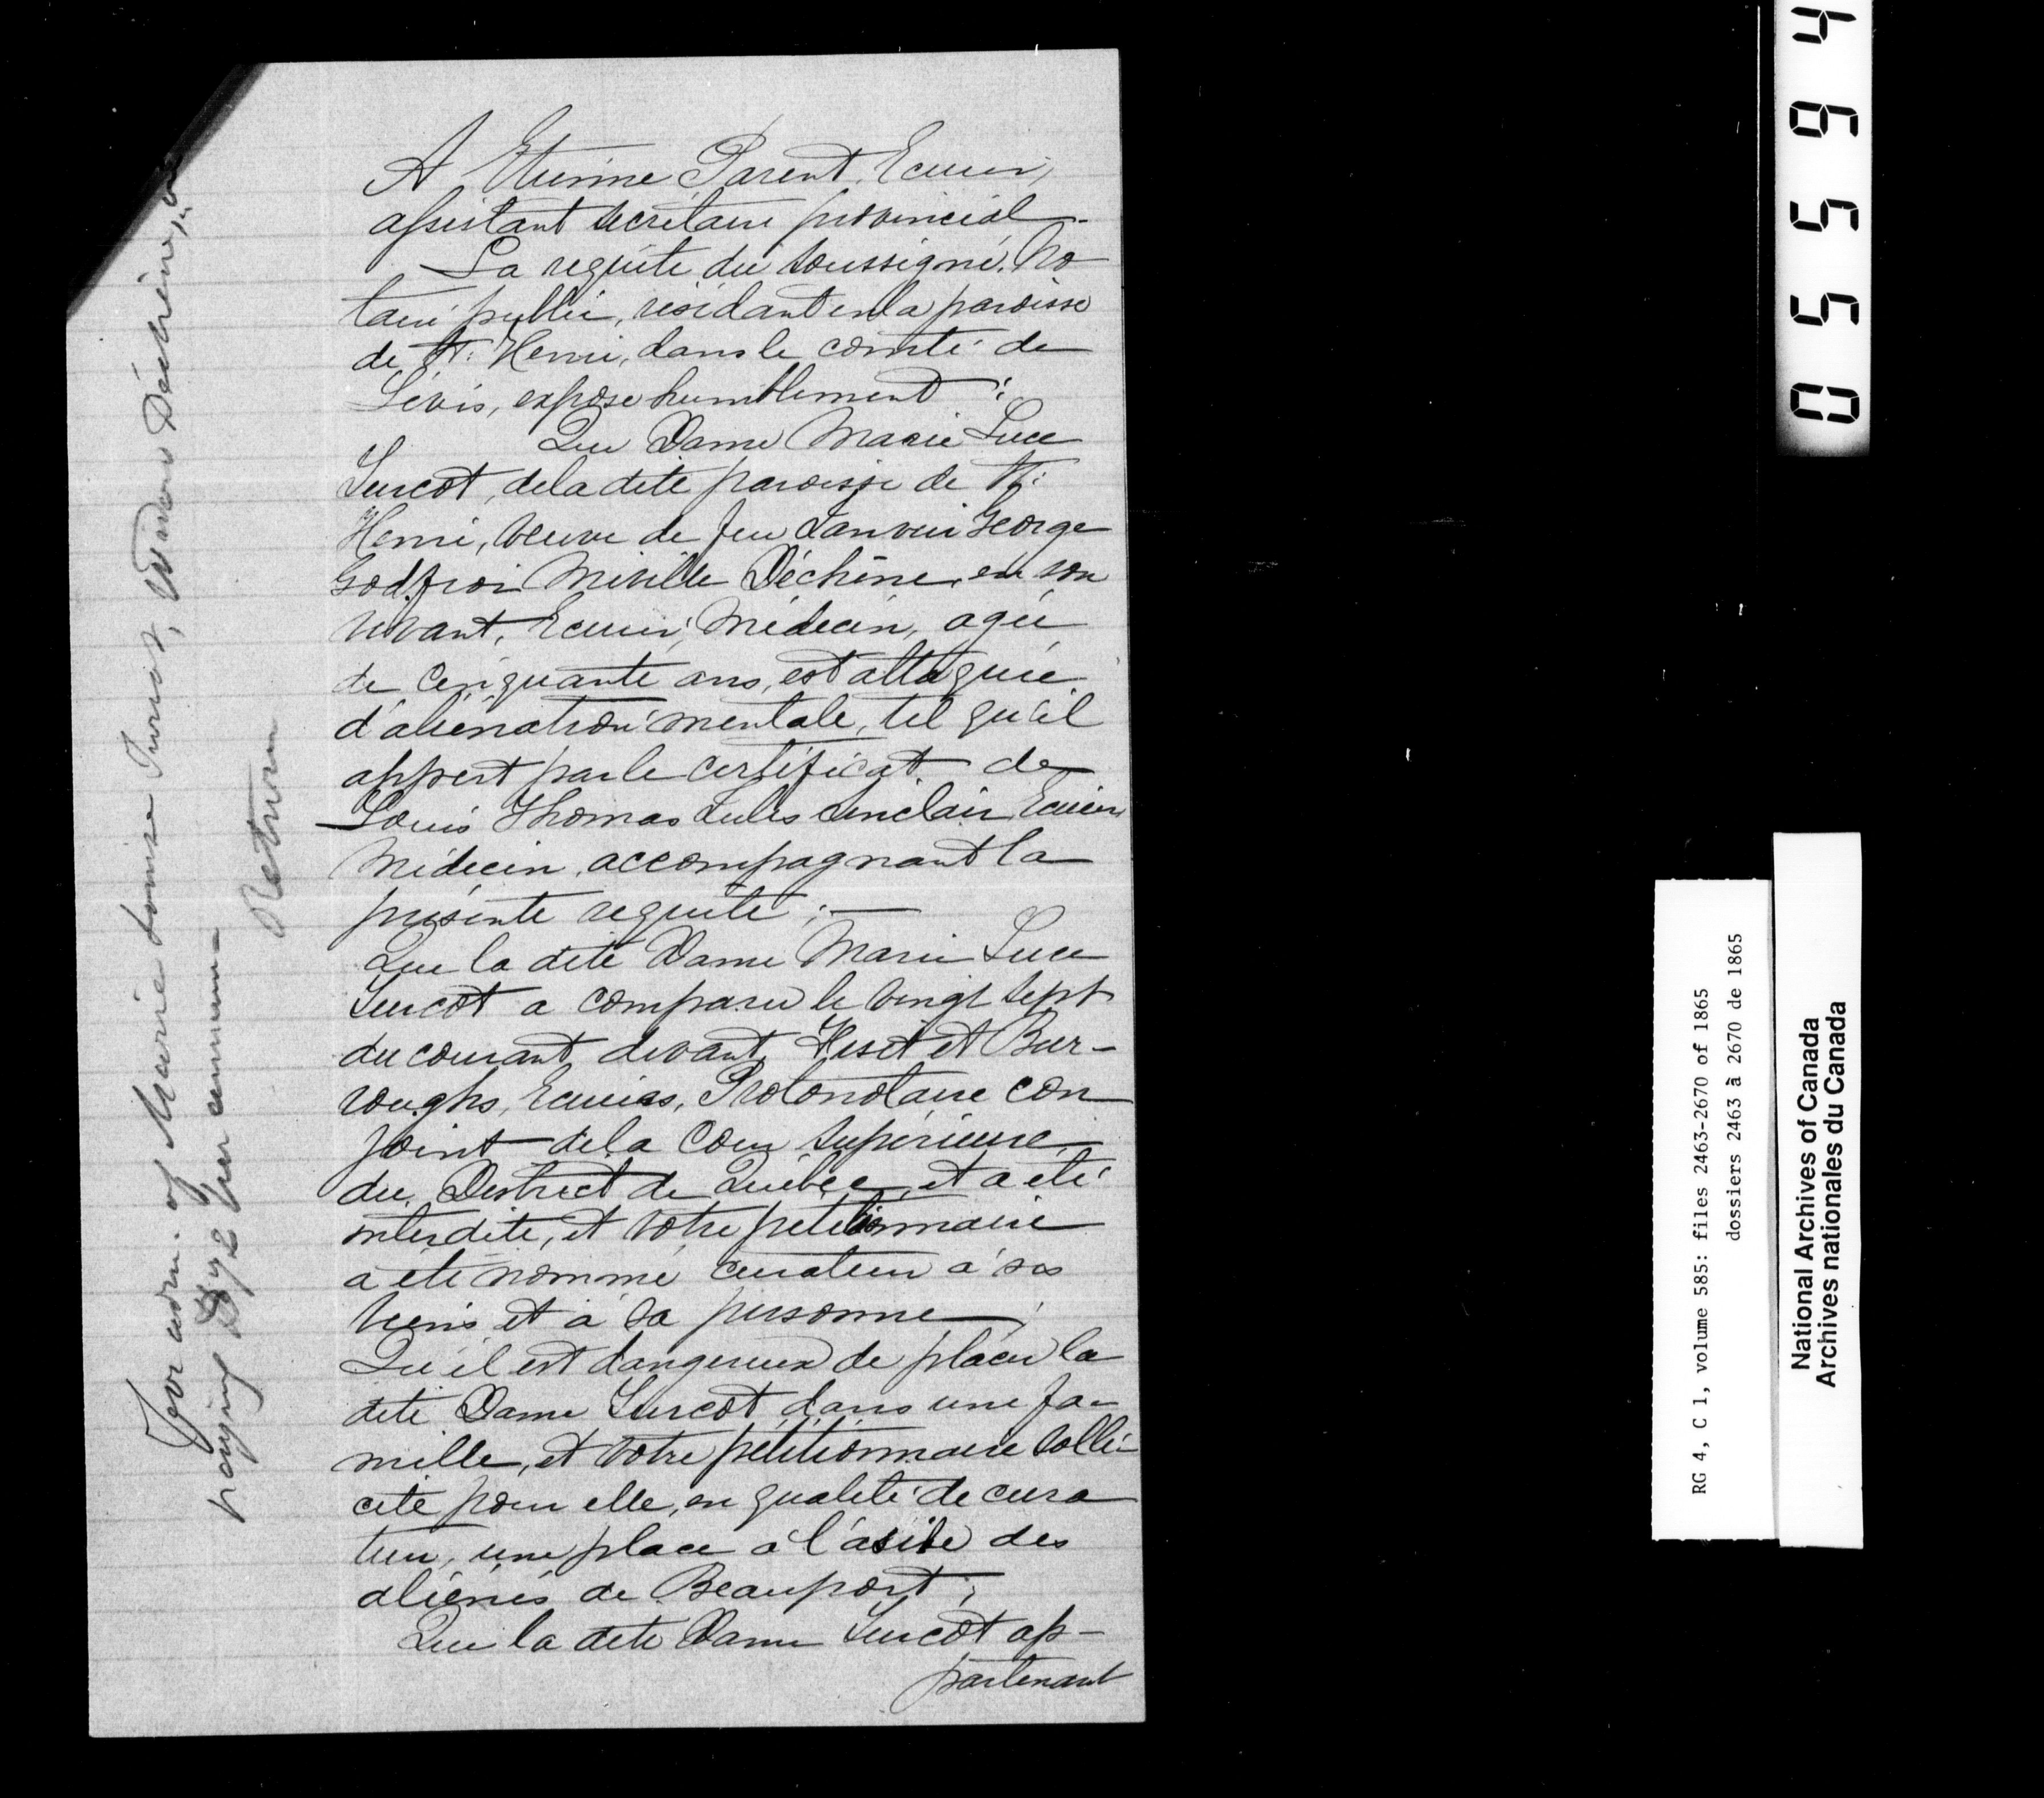 A Etienne Parent, Ecuier,
assistant secrétaire provincial.
La requête du soussigné, No
taire public, résidant en la paroisse
de St: Henri, dans le comté de
Lévis, expose humblement :
Que Dame Marie Luce
Turcot, de la dite paroisse de St:
Henri, veuve de feu Janvier George
Godfroi Miville Déchène, en son
vivant, Ecuier, Médecin, agée
de cinquante ans, est attaquée
d'aliénation mentale, tel qu'il
appert par le certificat de
Louis Thomas Jules Sinclair, Ecuier
Médecin, accompagnant la
présente requête ; —
Que la dite Dame Marie Luce
Turcot a comparu le vingt sept
du courant, devant Fiset et Bur-
roughs, Ecuiers, Protonotaire con
joint de la Cour Supérieure,
du District de Québec, et a été
interdite, et votre petitionnaire
a été nommé curateur à ses
biens et à sa personne ;
Qu'il est dangereux de placer la
dite Dame Turcot dans une fa-
mille, et votre pétitionnaire solli-
cite pour elle, en qualité de cura
teur, une place à l'asile des
aliénés de Beauport ;
Que la dite Dame Turcot ap-
partenant
For adm. of Marie Louise Turcot, Widow Déchène,
paying $ per annum
Return
05594
RG 4, C 1, volume 585: files 2463-2670 of 1865
dossiers 2463 à 2670 de 1865
National Archives of Canada
Archives nationales du Canada